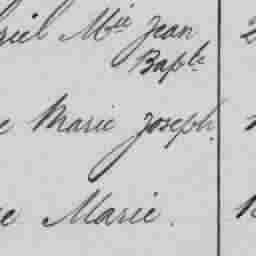 riel Mie Jean
Bapte
e Marie Joseph.
e Marie.